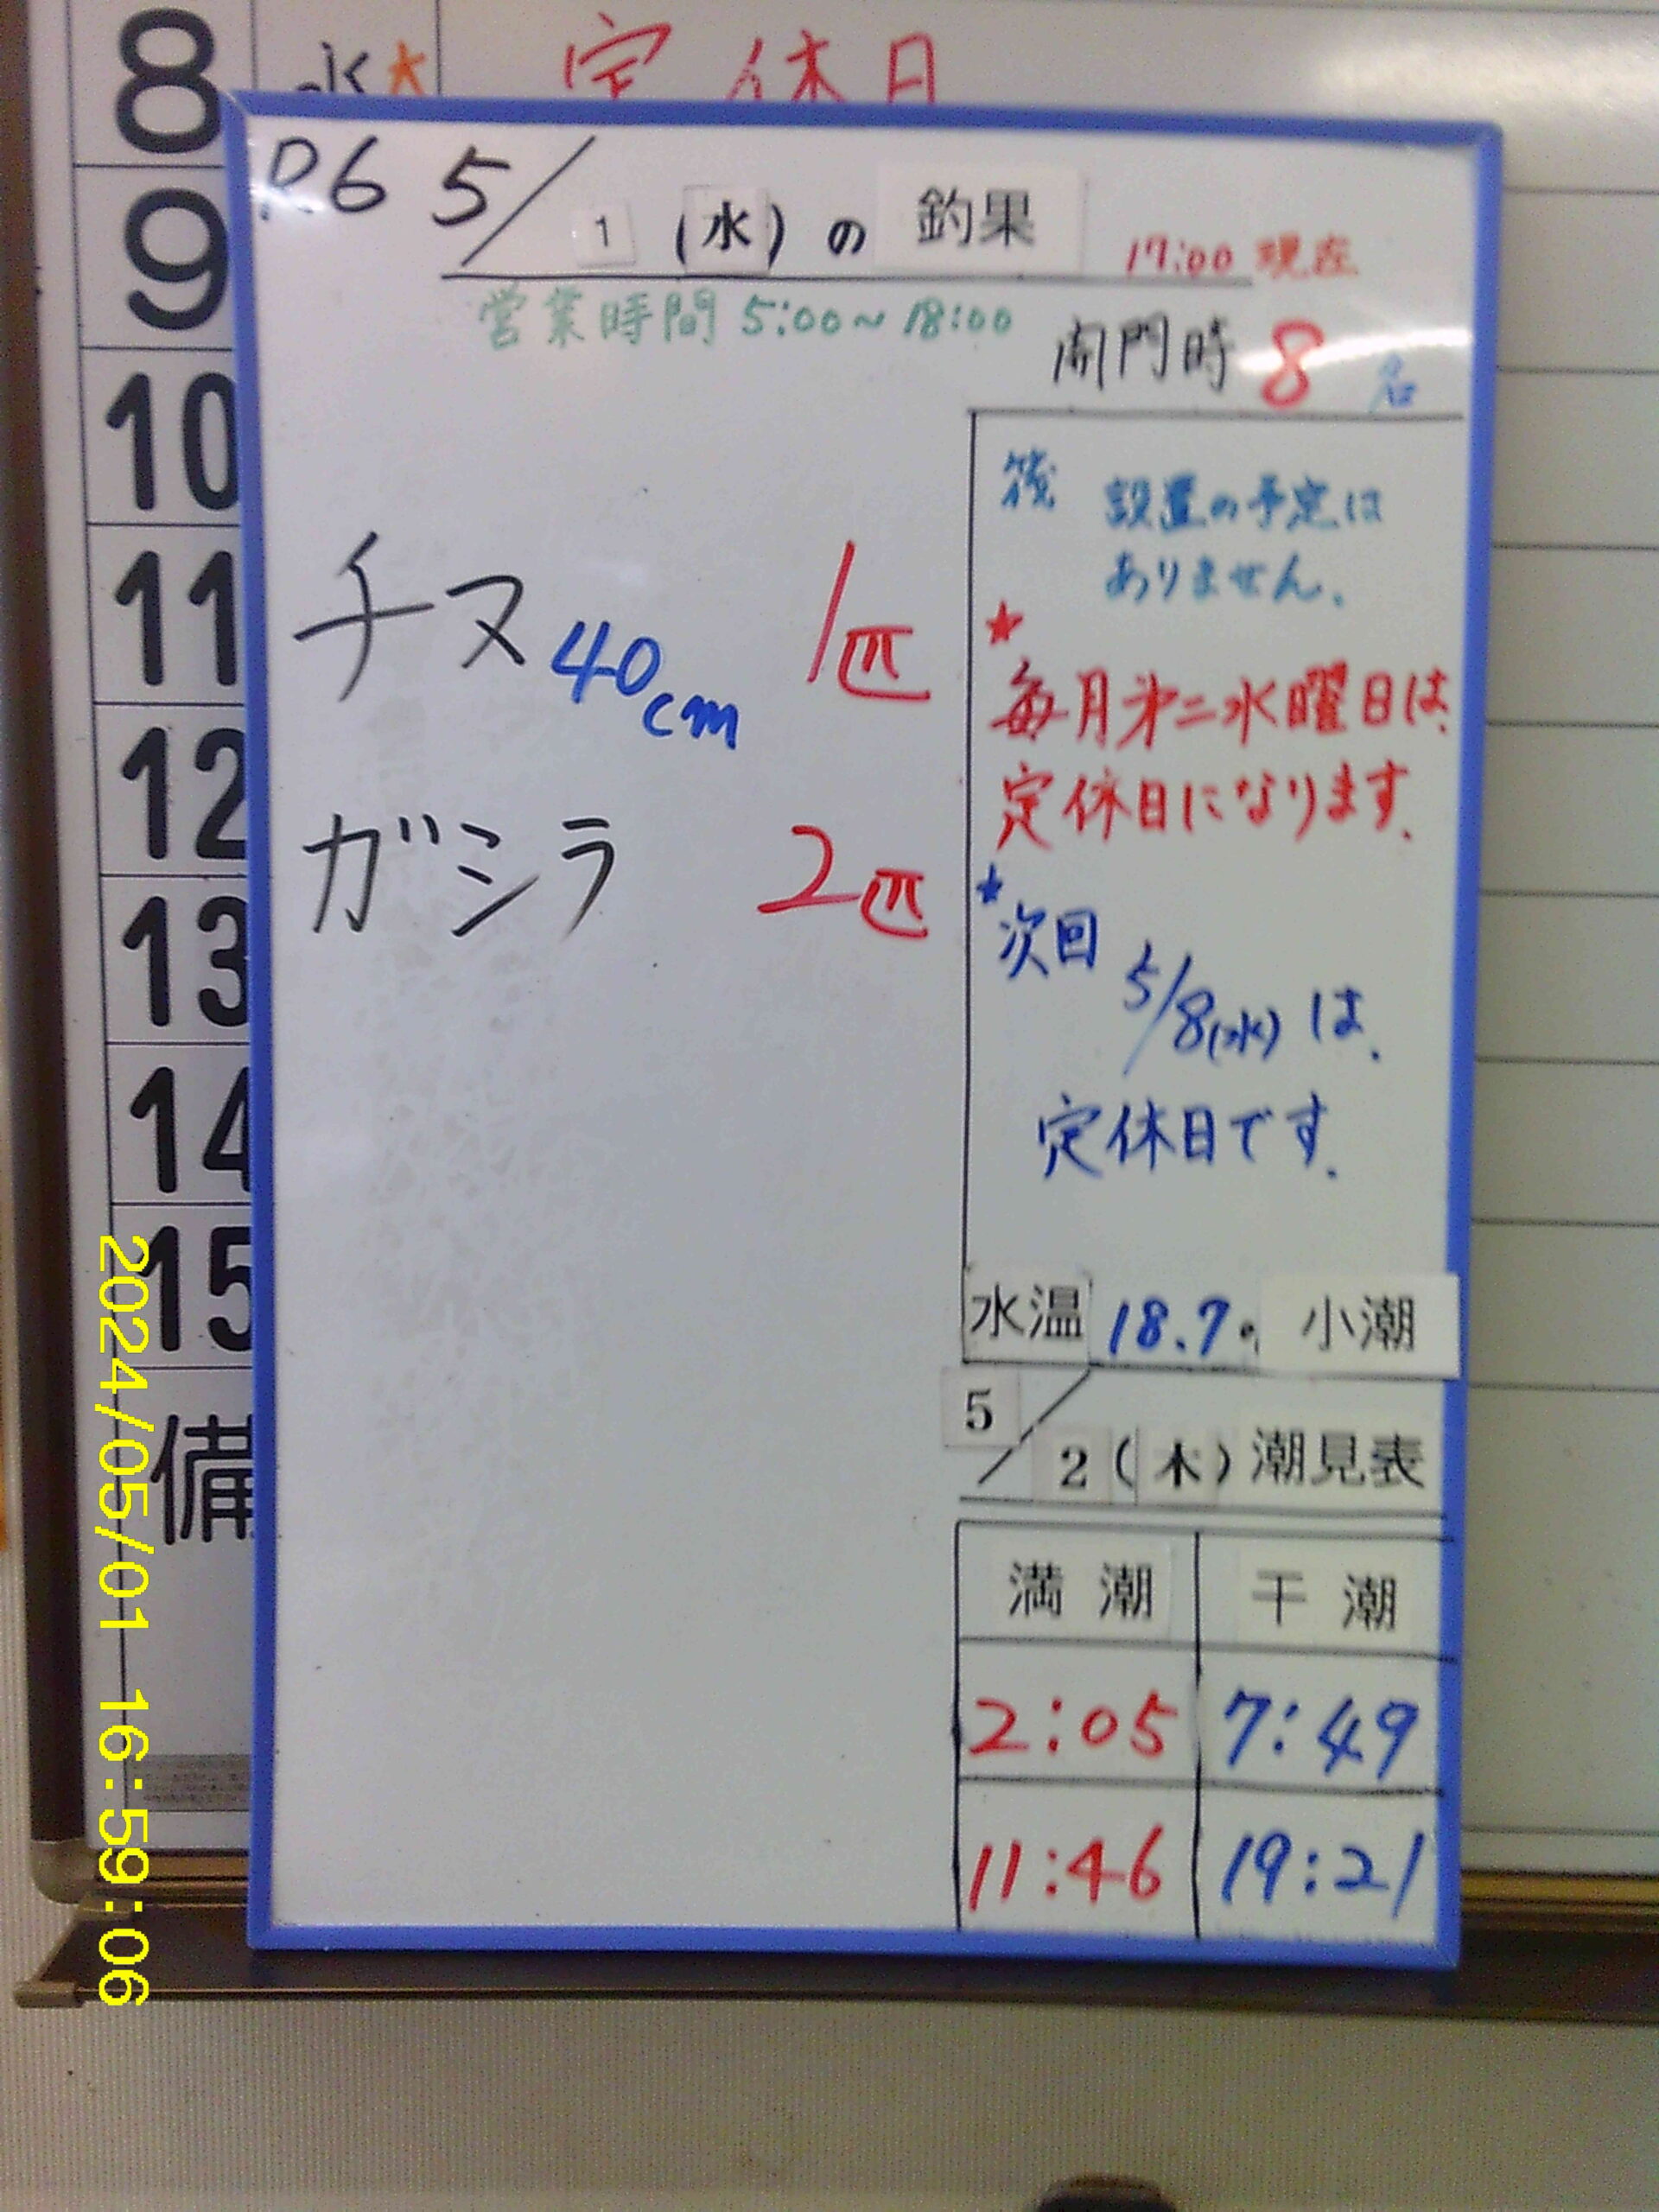 8 水★ 定休日
9
10
11
12
13
14
15
備
R6 5/1 (水) の 釣果
17:00 現在
営業時間 5:00~18:00
開門時 8 名
チヌ 40cm 1匹
ガシラ 2匹
筏 設置の予定は
ありません.
★
毎月第二水曜日は、
定休日になります.
★次回
5/8(水) は、
定休日です.
水温 18.7 小潮
5/2 (木) 潮見表
満潮 干潮
2:05 7:49
11:46 19:21
2024/05/01 16:59:06